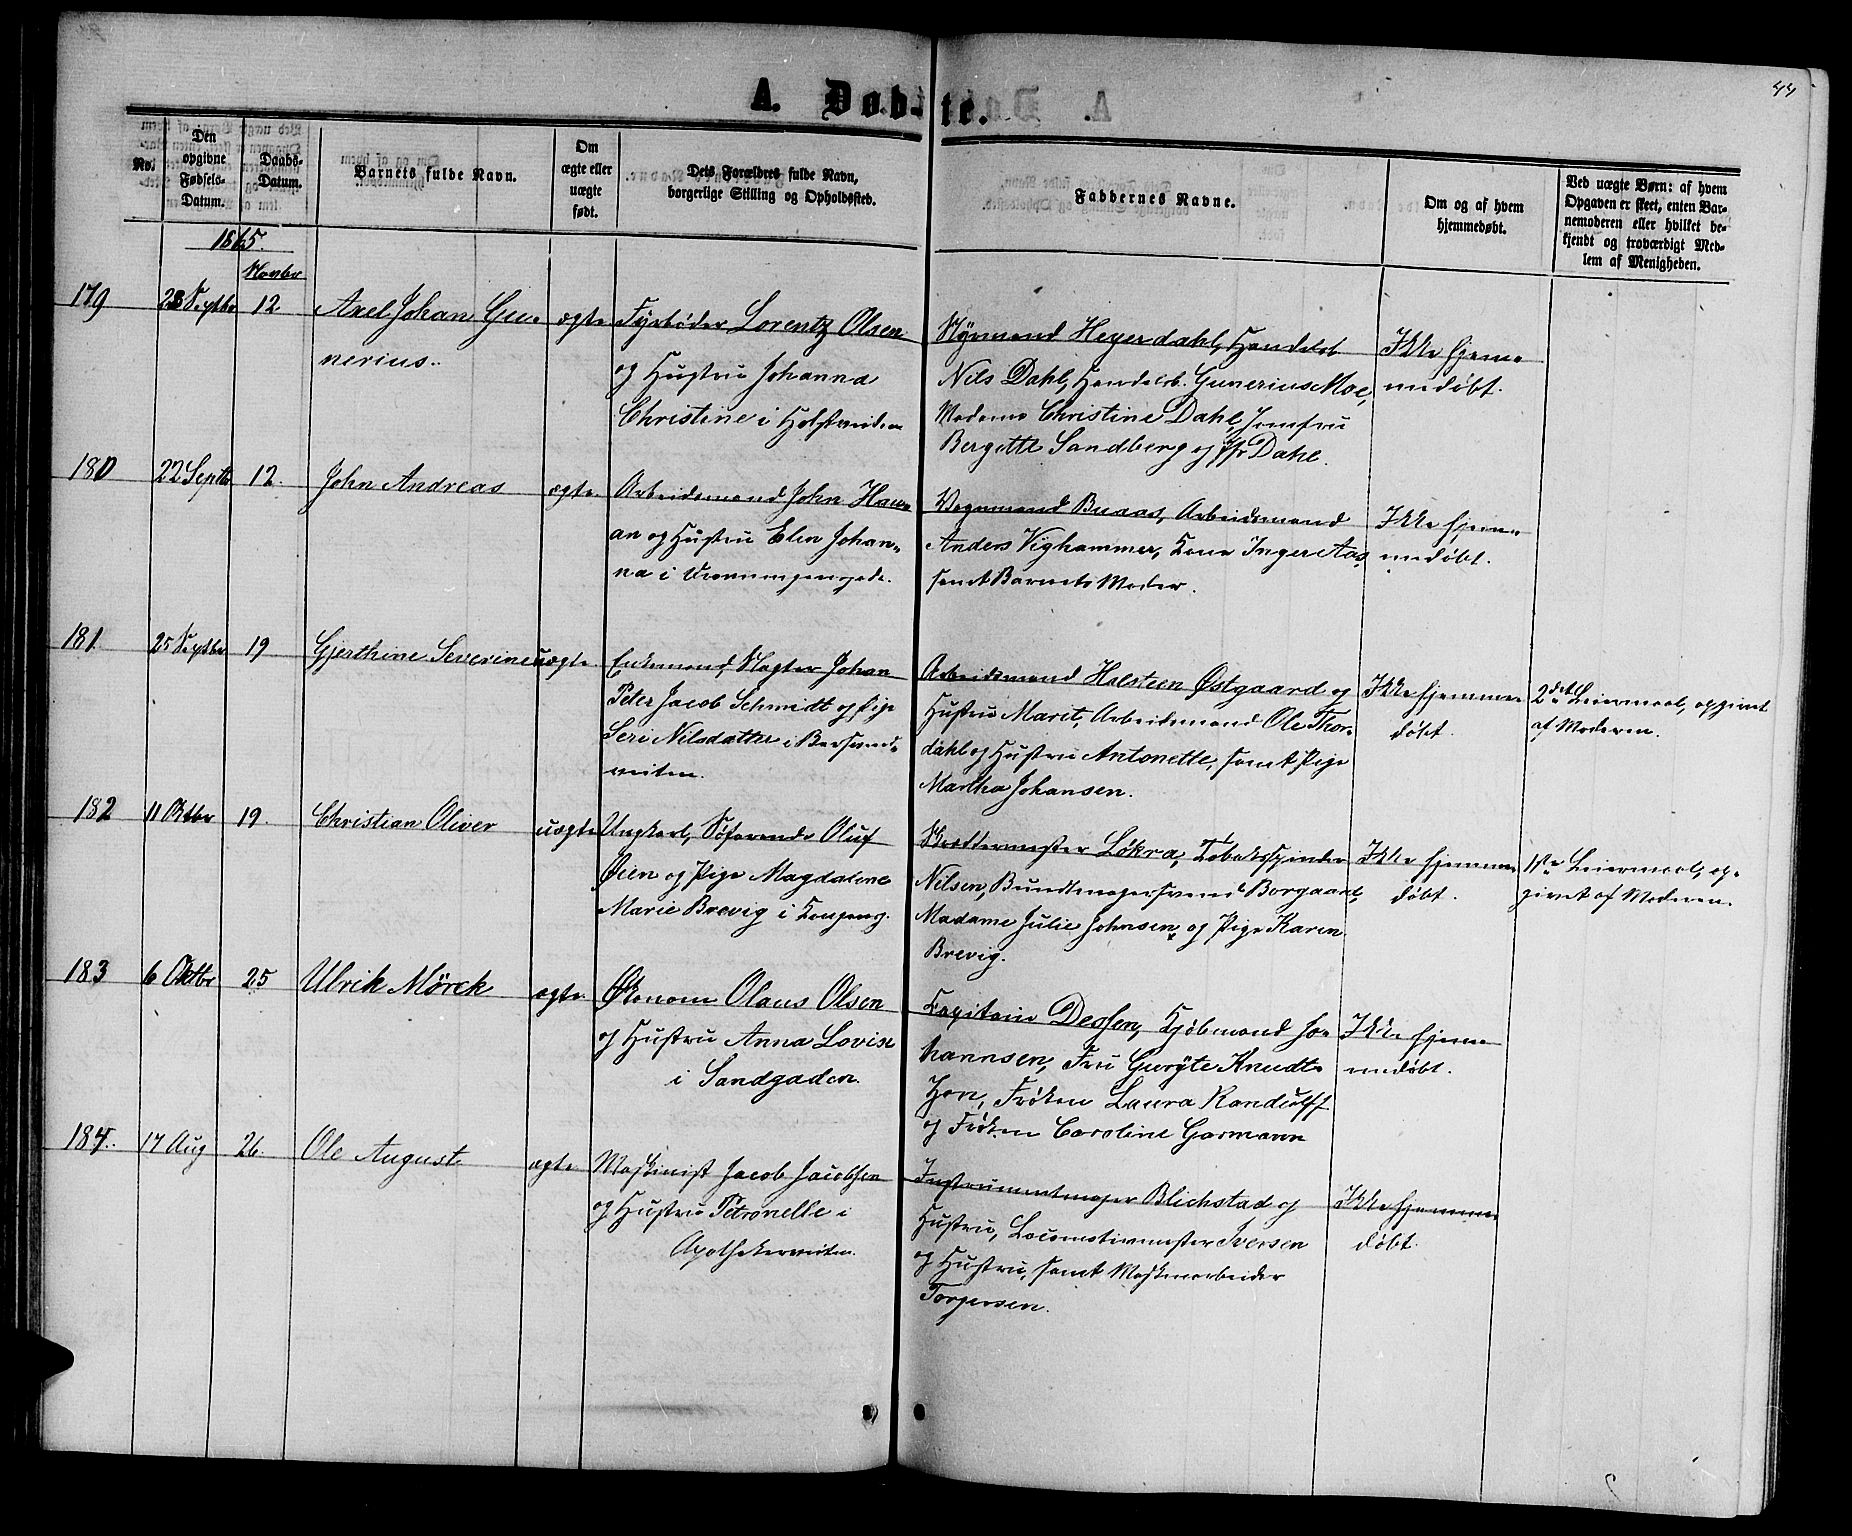 44
A. Døbte.
No.
Den opgivne Fødsels-Datum.
Daabs-Datum.
Barnets fulde Navn.
Om ægte eller uægte født.
Dets Forældres fulde Navn, borgerlige Stilling og Opholdssted.
Faddernes Navne.
Om og af hvem hjemmedøbt.
Ved uægte Børn: af hvem Opgaven er skeet, enten Barnemoderen eller hvilket bekjendt og troværdigt Medlem af Menigheden.
1865.
Novbr
179 23 Septbr 12 Axel Johan Gun-
nerius.
ægte
Fyrbøder Lorentz Olsen
og Hustru Johanna
Christine i Holstveiten
Styrmand Heyerdahl, Handelsb.
Nils Dahl, Handelsb. Gunerius Moe,
Madame Christine Dahl, Jomfru
Bergette Sandberg og Jfr Dahl.
Ikke hjem-
medøbt.
180 22 Septbr 12. John Andreas
ægte
Arbeidsmand John Hau-
an og Hustru Elen Johan-
na i Dronningensgade.
Vognmand Buaas, Arbeidsmand
Anders Vighammer, Kone Inger Aas
samt Barnets Moder.
Ikke hjem-
medøbt.
181. 25 Septbr 19 Gjerthine Severine
uægte
Enkemand, Slagter Johan
Peter Jacob Schmidt og Pige
Seri Nilsdatter i Bersvend-
veiten.
Arbeidsmand Halsteen Østgaard og
Hustru Marit, Arbeidsmand Ole Thor-
dahl og Hustru Antonette, samt Pige
Martha Johansen.
Ikke hjemme
døbt.
2det Leiermaal, opgivet
af Moderen.
182 11 Oktbr 19. Christian Oliver
uægte
Ungkarl, Søfarende Oluf
Øien og Pige Magdalene
Marie Brevig i Kongensg.
Skrædermester Løkra, Tobakspinder
Nilsen, Bundtmagersvend Borgaard,
Madame Julie Johnsen og Pige Karen
Brevig.
Ikke hjemme
døbt.
1ste Leiermaal, op-
givet af Moderen.
183 6 Oktbr 25 Ulrik Mörck
ægte
Økonom Olaus Olsen
og Hustru Anna Lovise
i Sandgaden.
Capitain Dessen, Kjøbmand Jo-
hannsen, Fru Guryte Knudt-
zon, Frøken Laura Randulff
og Frøken Caroline Garmann
Ikke hjem-
medøbt.
184. 17 Aug 26. Ole August
ægte
Maskinist Jacob Jacobsen
og Hustru Petronelle i
Apothekerveiten.
Instrumentmager Blichstad og
Hustru, Locomotivmester Iversen
og Hustru, samt Maskinarbeider
Torgersen.
Ikke hjemme
døbt.